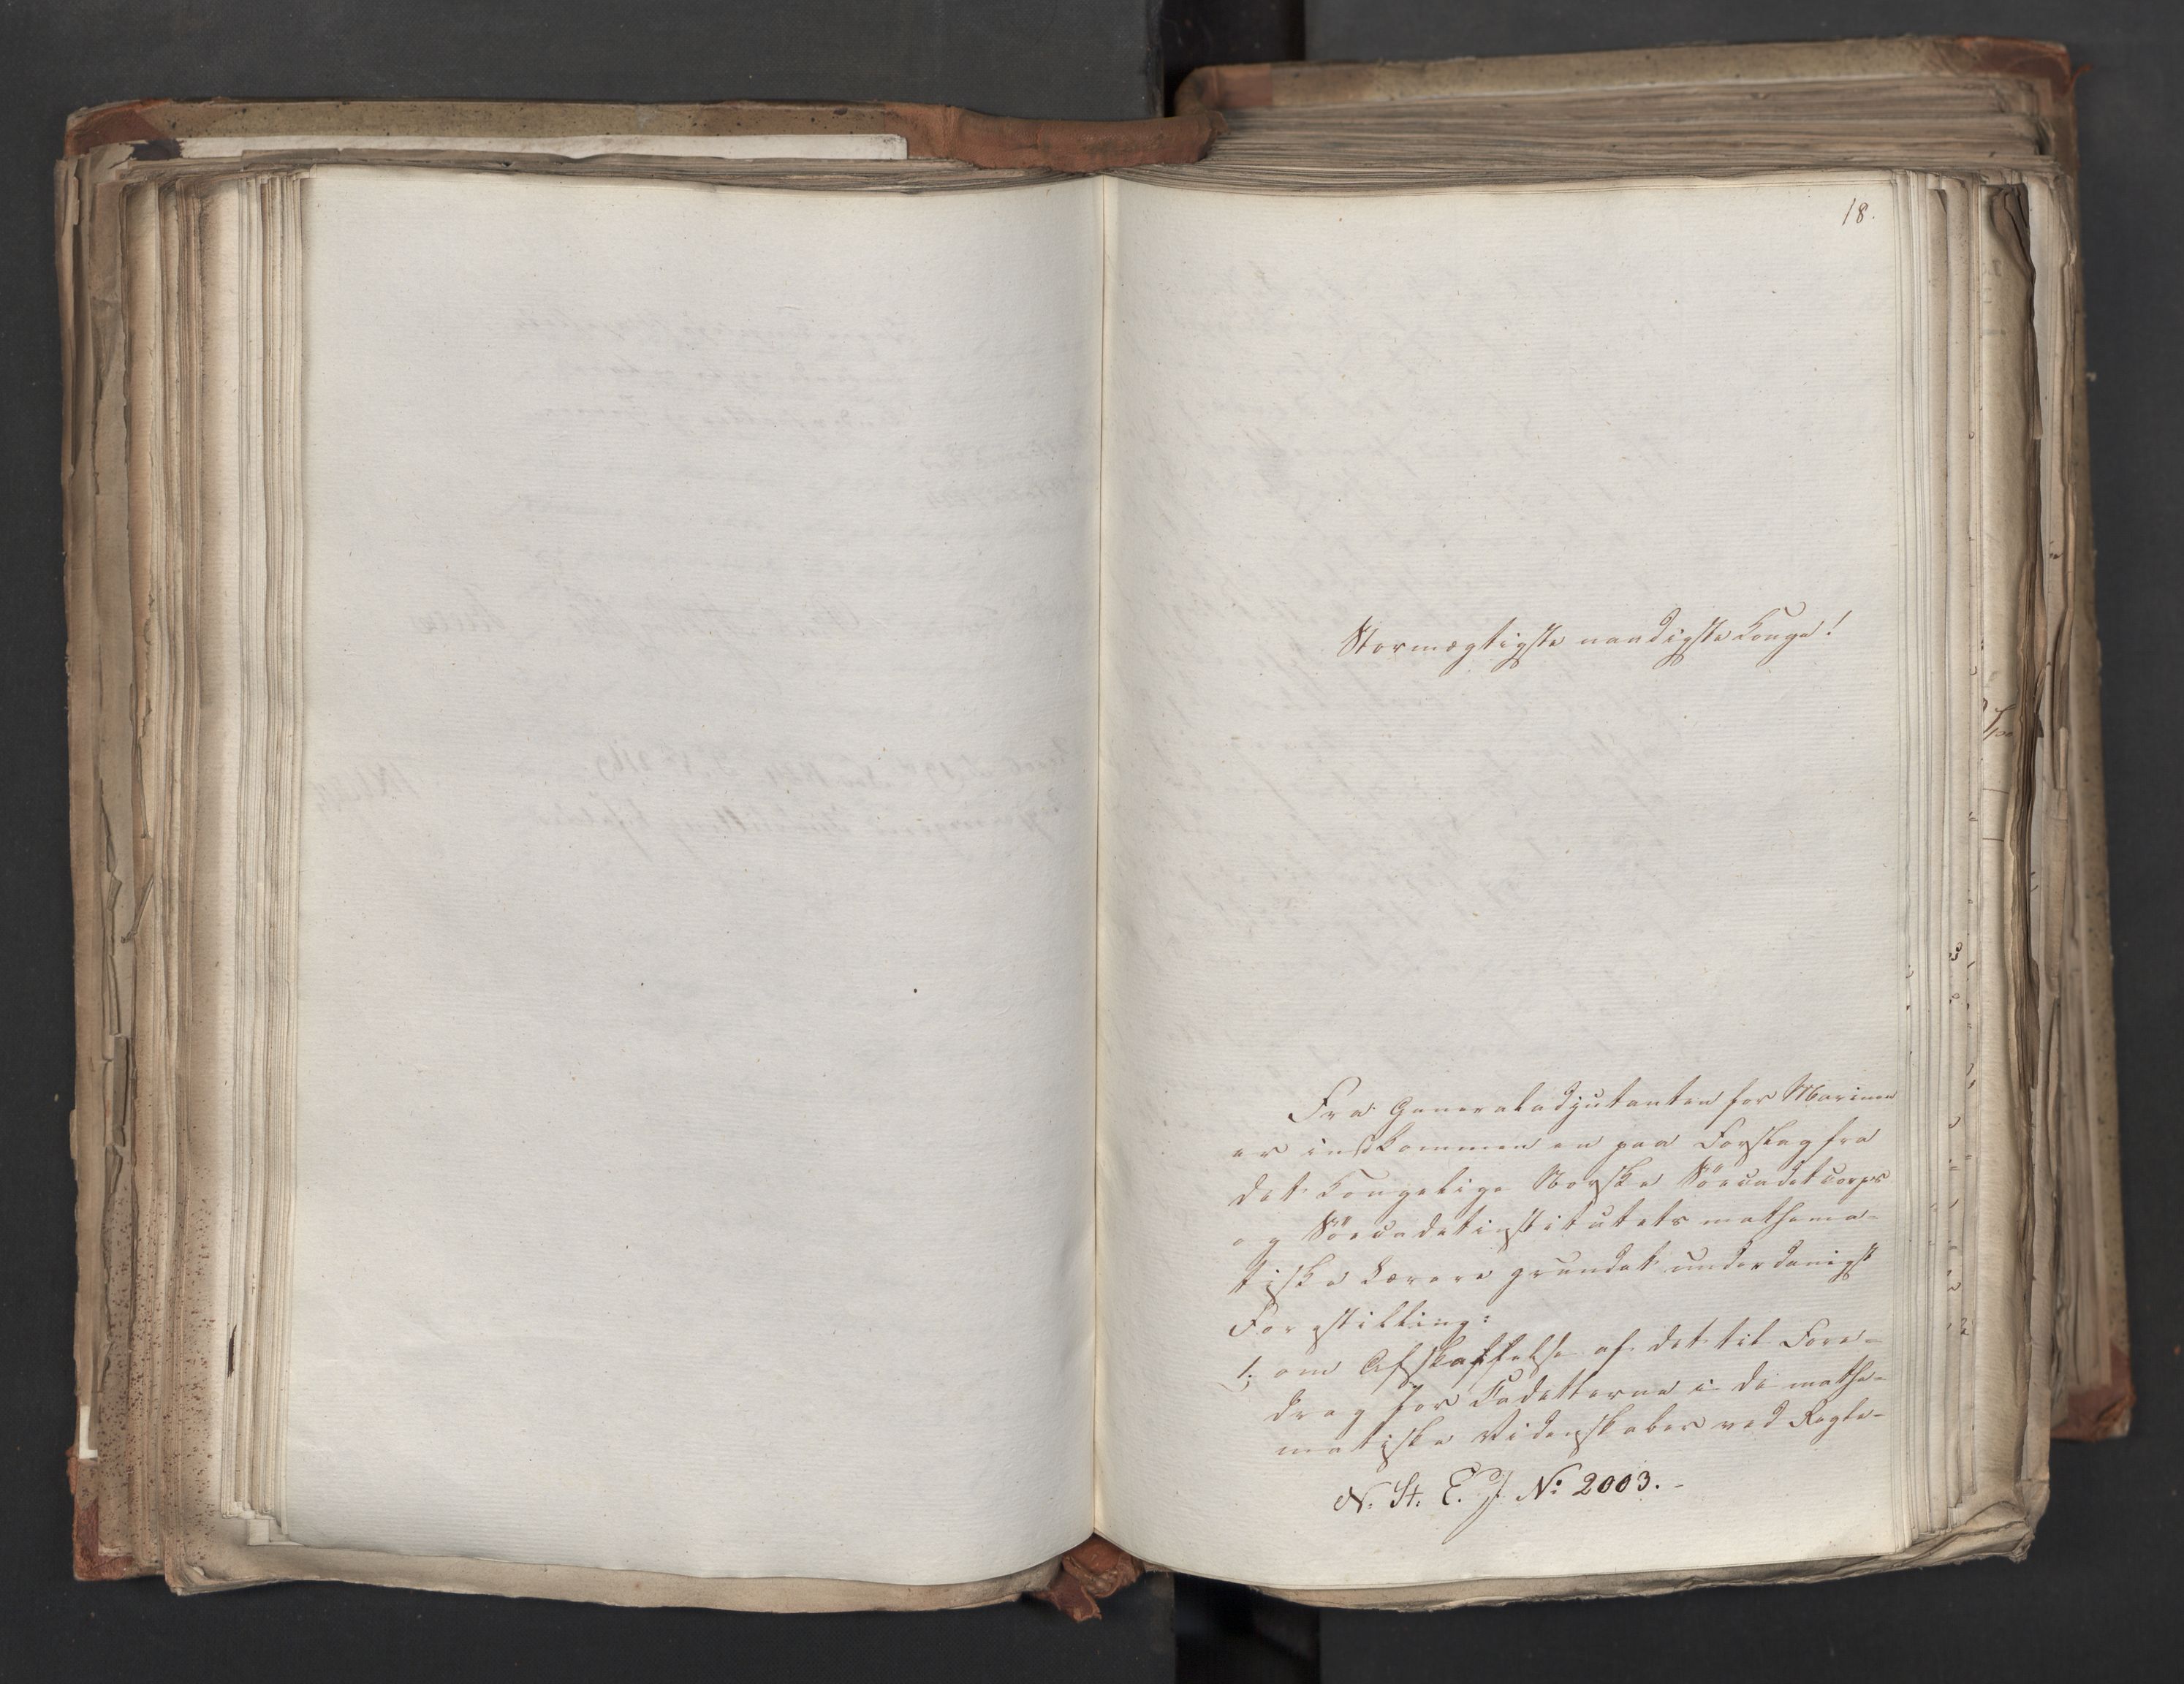 18.
Stormægtigste naadigste Konge!
Fra Generaladjutanten for Marinen
er indkommen en paa Forslag fra
det Kongelige Norske Söecadetcorps
og Söecadetinstitutets mathema-
tiske Lærere grundet underdanigst
Forestilling:
1; om Afskaffelse af det til Fore-
drag for Cadetterne i de mathe-
matiske Videnskaber ved Regle-
N. St. E. J. No 2003.-